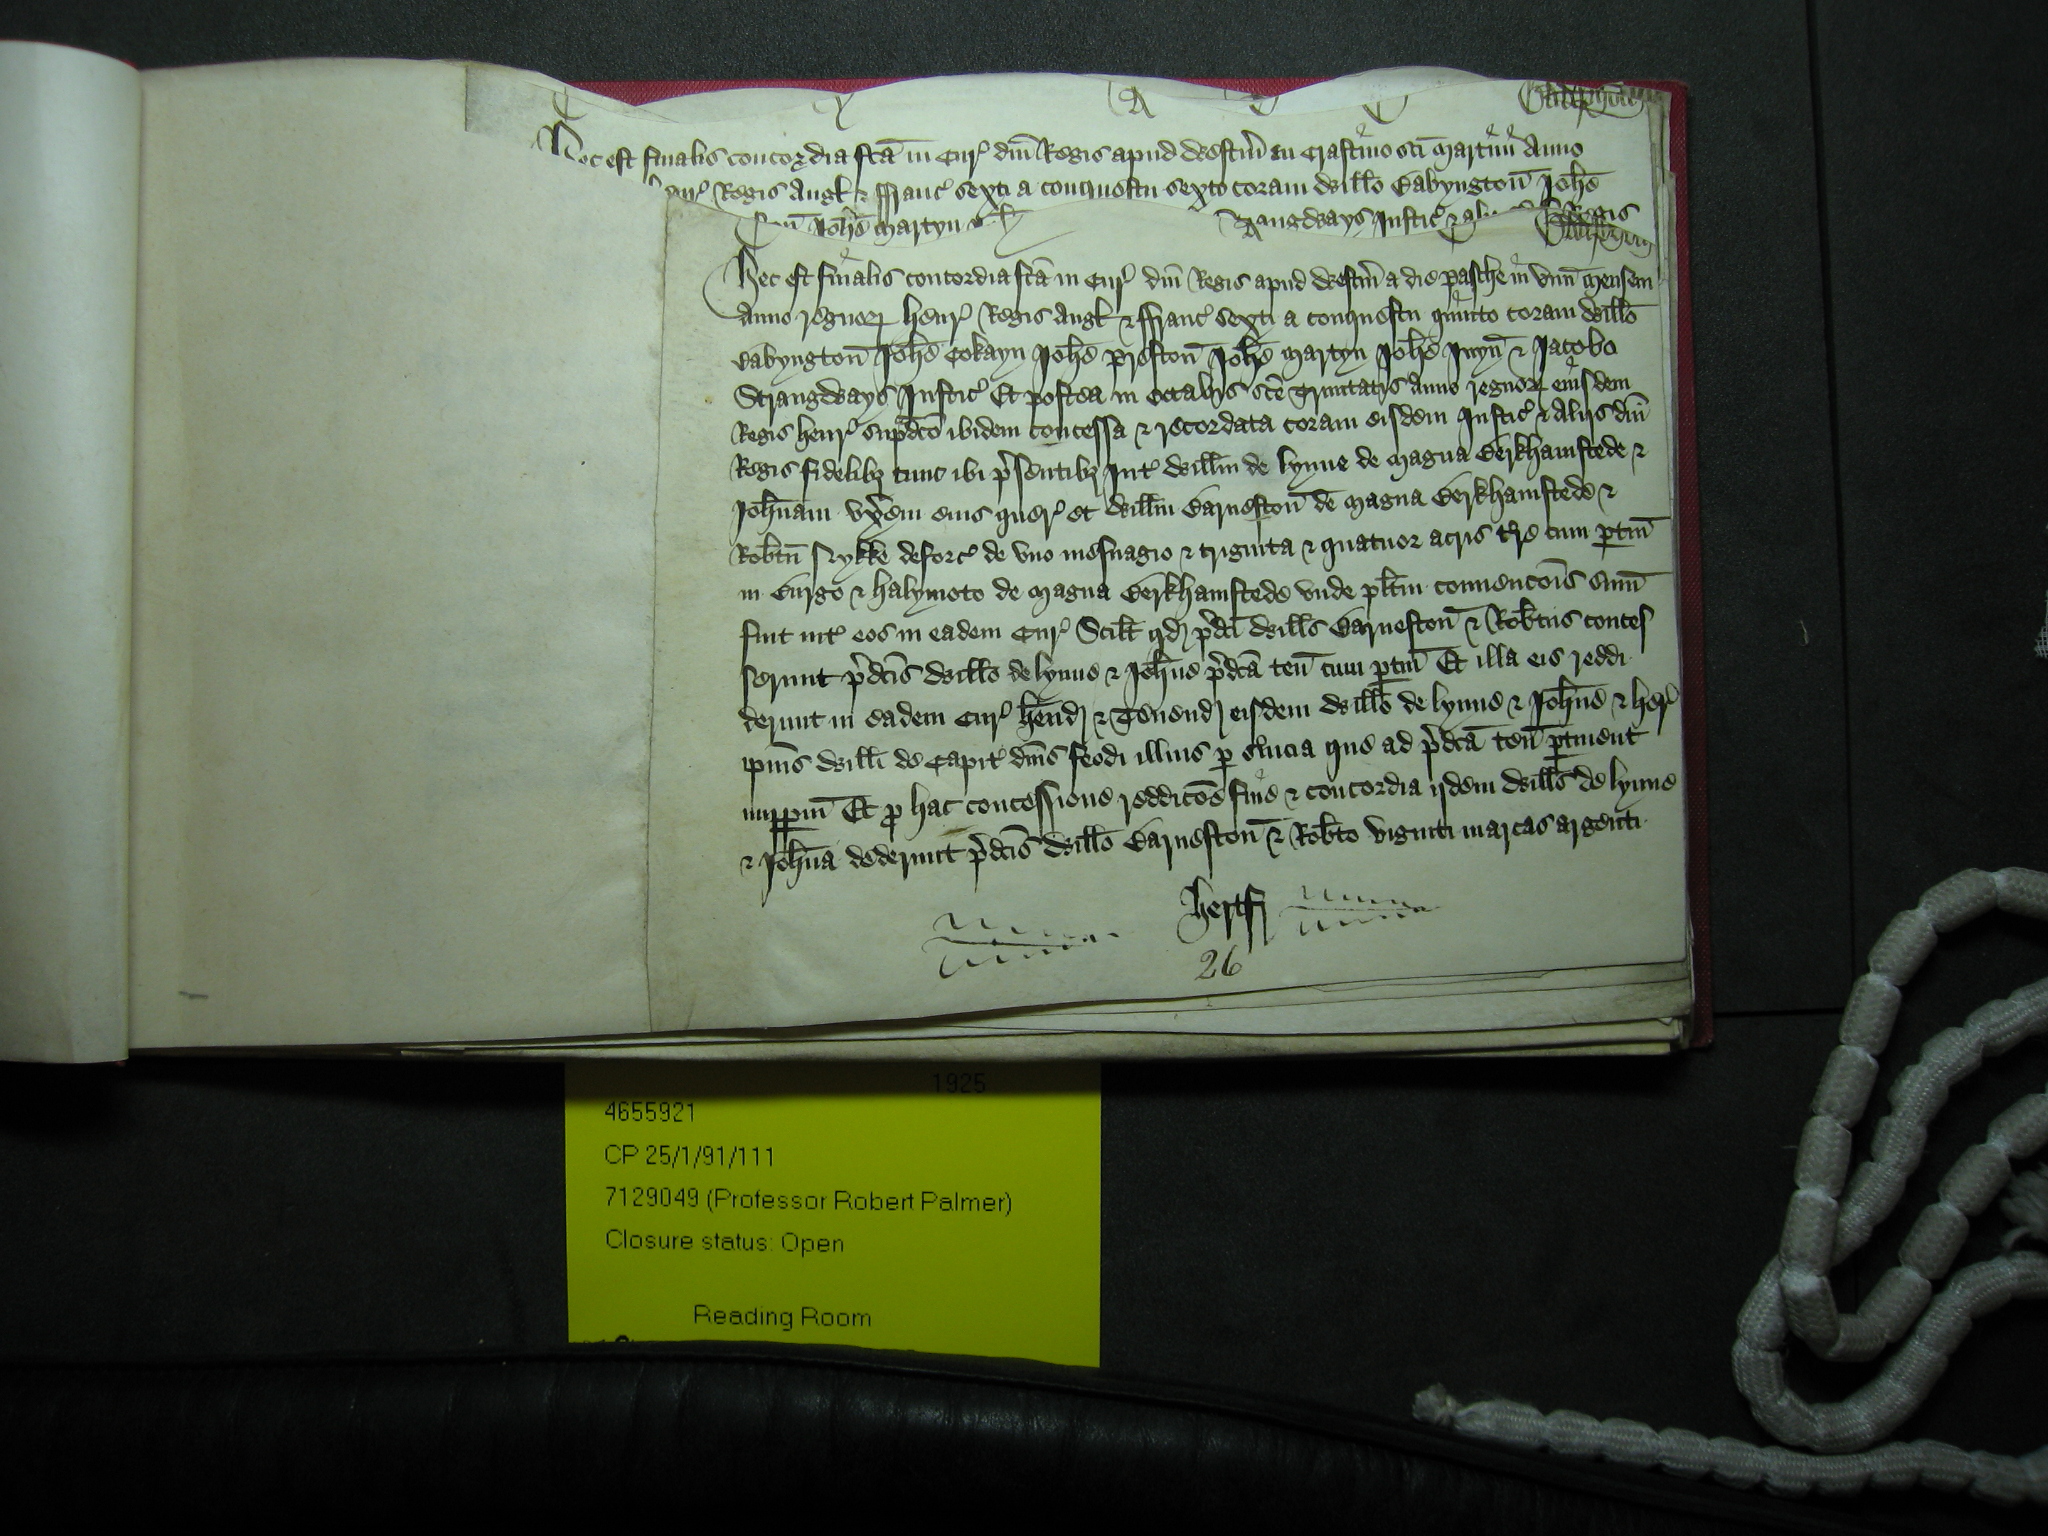 Hec est finalis concordia fcā in Cur' dnī Regis apud Westm̄ in Crastino scī Martini Anno
Regis Angl' & Franc' sexti a conquestu sexto coram Willo Babyngton̄ Johē
Johē Martyn &
Strangways Justic' &
Regis
Hec est finalis concordia fcā in Cur' dnī Regis apud Westm̄ a die Pasche in vnū mensem
Anno regnorꝝ Henr' Regis Angl' & Franc' sexti a conquestu quinto coram Willo
Babyngton̄ Johē Cokayn Johē Preston̄ Johē Martyn Johē Juyn̄ & Jacobo
Strangways Justic' Et postea in octabis scē Trinitatis anno regnorꝝ eiusdem
Regis Henr' supᵃdcō ibidem concessa & recordata coram eisdem Justic' & Aliis dnī
Regis fidelibꝫ tunc ibi p̄sentibꝫ Int' Willm̄ de Lynne de Magna Berkhamstede &
Joh̄nam vx̄em eius quer' et Willm̄ Barneston̄ de Magna Berkhamstede &
Rob̄tū Rykke deforc' de vno mesuagio & triginta & quatuor acris tr̄e cum ptin̄
in Burgo & Halymoto de Magna Berkhamstede vnde plītm conuencōis sum̄
fuit int' eos in eadem Cur' Scilt̄ qd p̄dcī Will̄s Barneston̄ & Rob̄tus conces
serunt p̄dcīs Willo de Lynne & Joh̄ne p̄dcā ten̄ cum ptin̄ Et illa eis reddi
derunt in eadem Cur' hend' & Tenend' eisdem Willo de Lynne & Joh̄ne & her'
ip̄ius Willi de Capit' dnīs feodi illius p seruicia que ad p̄dcā ten̄ ptinent
imppm̄ Et pro hac concessione reddicōe fine & concordia ijdem Will̄s de Lynne
& Joh̄na dederunt p̄dcīs Willo Barneston̄ & Rob̄to viginti marcas argenti
Hertf'
26
1925
4655921
CP 25/1/91/111
7129049 (Professor Robert Palmer)
Closure status: Open
Reading Room